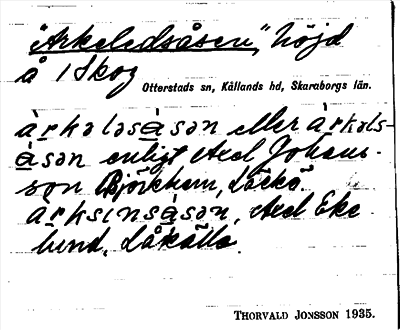 "Arkeledsåsen", höjd
å 1 Skog
Otterstads sn, Kållands hd, Skaraborgs län.
àrkələsåsən eller àrkəls-
åsən enligt Axel Johans-
son Björkhem, Läckö.
àrksɩnsåsən, Axel Eke
lund, Låkälla.
THORVALD JONSSON 1935.